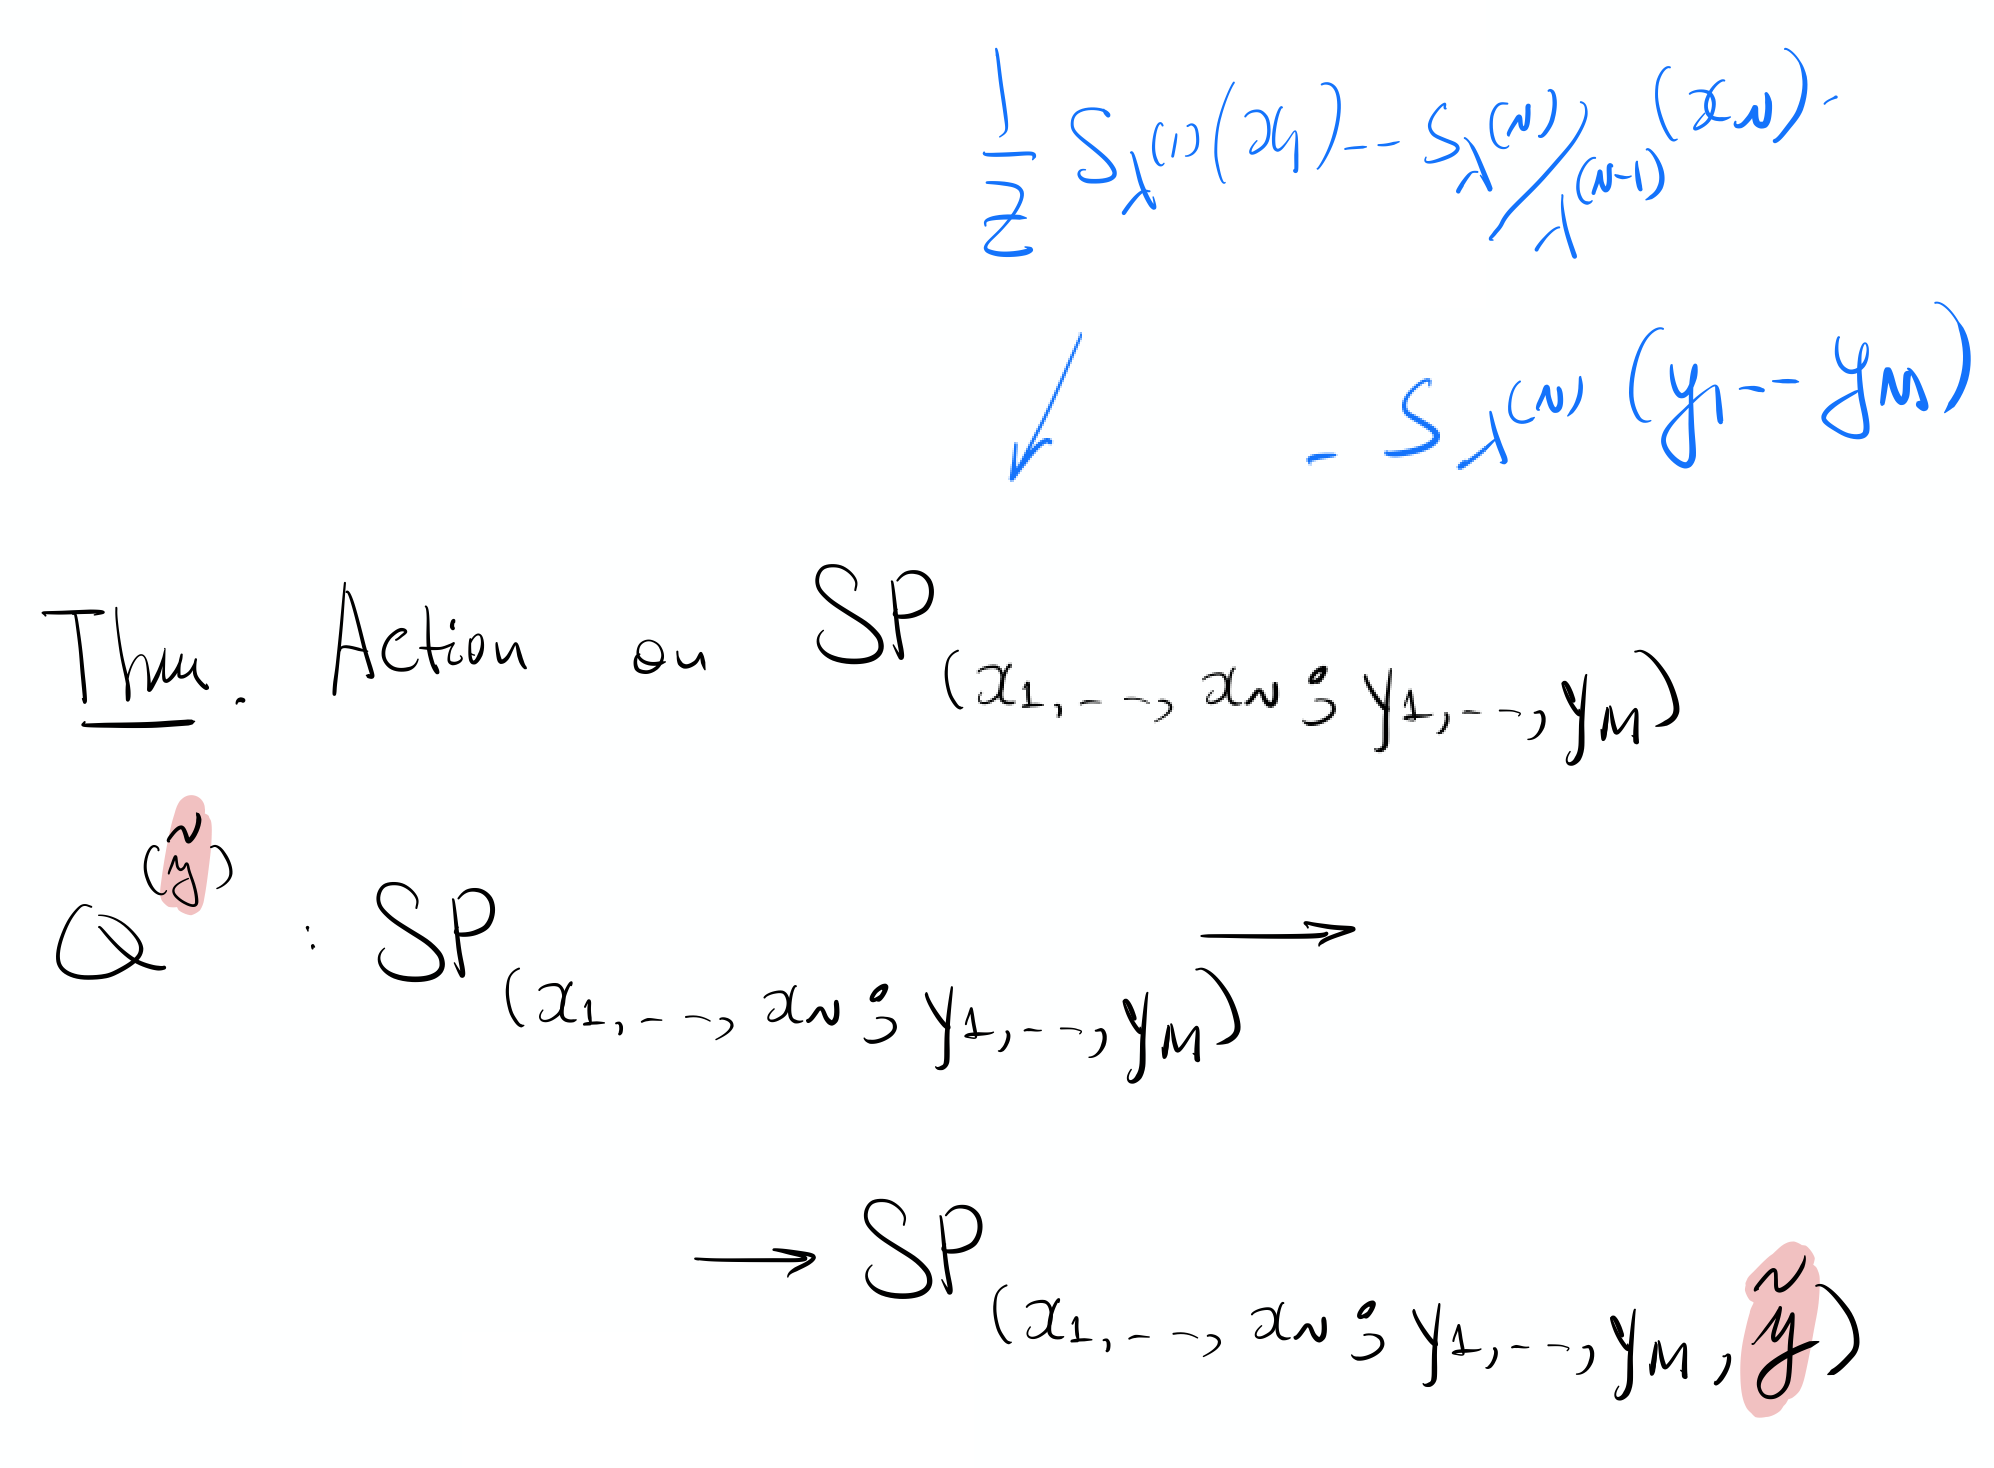 1/Z S_λ^(1) (x_1) -- S_λ^(N)/λ^(N-1) (x_N) ·
- S_λ^(N) (y_1 -- y_M)
Thm. Action on SP_(x_1, - - -, x_N ; y_1, - - -, y_M)
Q^(ỹ) : SP_(x_1, - - -, x_N ; y_1, - - -, y_M) ⟶
⟶ SP_(x_1, - - -, x_N ; y_1, - - -, y_M, ỹ)